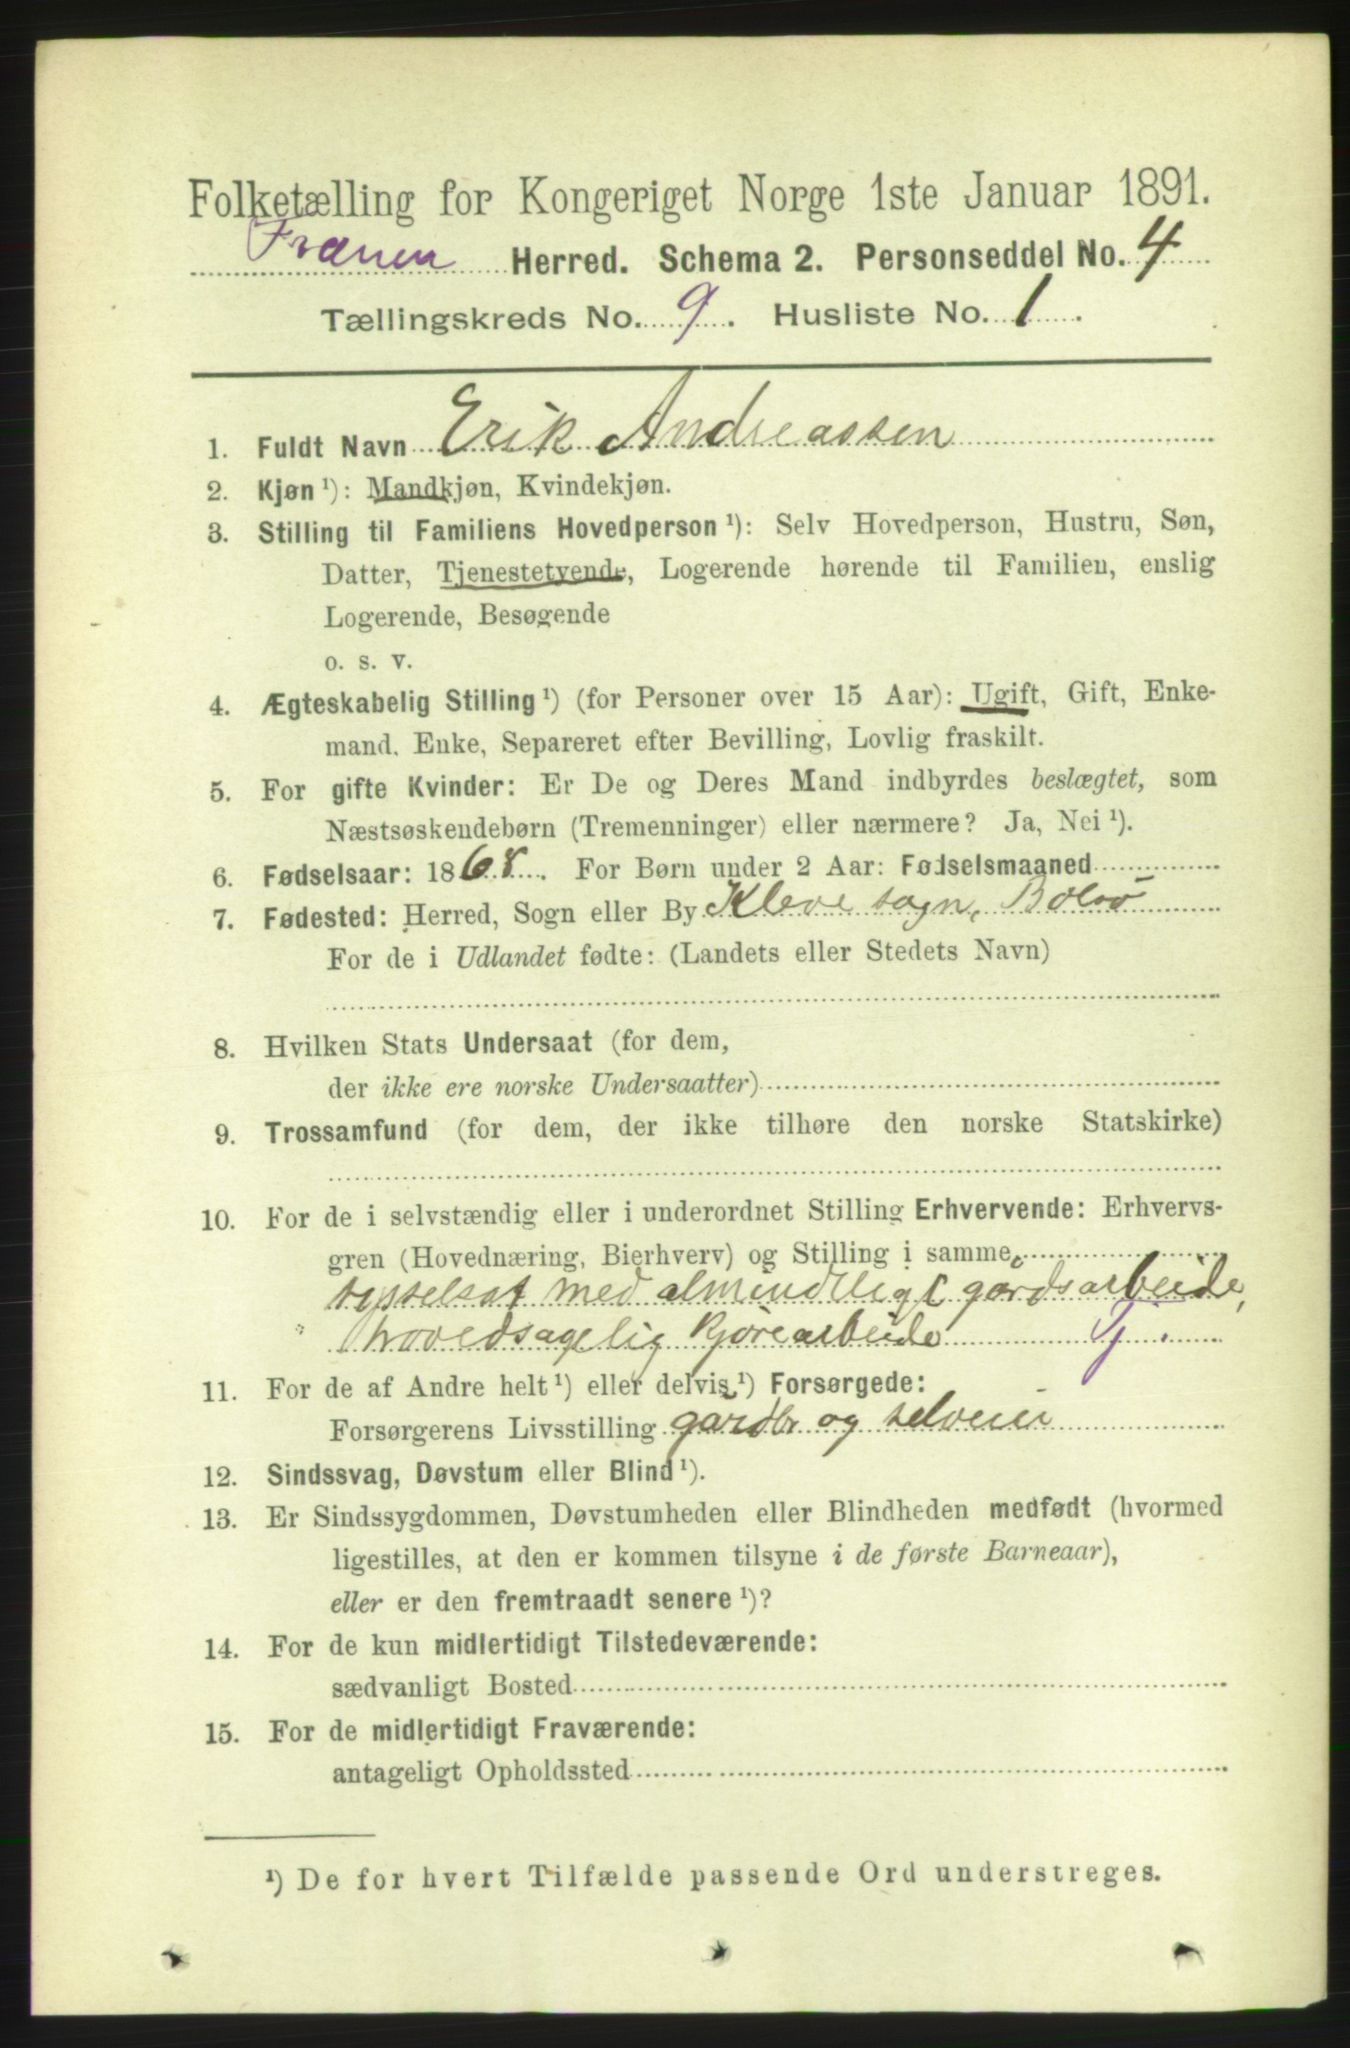 Folketælling for Kongeriget Norge 1ste Januar 1891.
Frænen Herred. Schema 2. Personseddel No. 4
Tællingskreds No. 9. Husliste No. 1.
1. Fuldt Navn Erik Andreassen
2. Kjøn ¹): Mandkjøn, Kvindekjøn.
3. Stilling til Familiens Hovedperson ¹): Selv Hovedperson, Hustru, Søn,
Datter, Tjenestetyende, Logerende hørende til Familien, enslig
Logerende, Besøgende
o. s. v.
4. Ægteskabelig Stilling ¹) (for Personer over 15 Aar): Ugift, Gift, Enke-
mand, Enke, Separeret efter Bevilling, Lovlig fraskilt.
5. For gifte Kvinder: Er De og Deres Mand indbyrdes beslægtet, som
Næstsøskendebørn (Tremenninger) eller nærmere? Ja, Nei ¹).
6. Fødselsaar: 1868. For Børn under 2 Aar: Fødselsmaaned
7. Fødested: Herred, Sogn eller By Kleve sogn, Bolsø
For de i Udlandet fødte: (Landets eller Stedets Navn)
8. Hvilken Stats Undersaat (for dem,
der ikke ere norske Undersaatter)
9. Trossamfund (for dem, der ikke tilhøre den norske Statskirke)
10. For de i selvstændig eller i underordnet Stilling Erhvervende: Erhvervs-
gren (Hovednæring, Bierhverv) og Stilling i samme
sysselsat med almindeligt gardsarbeide,
hovedsagelig kjørearbeide Tj.
11. For de af Andre helt ¹) eller delvis ¹) Forsørgede:
Forsørgerens Livsstilling gårdbr og selveier
12. Sindssvag, Døvstum eller Blind ¹).
13. Er Sindssygdommen, Døvstumheden eller Blindheden medfødt (hvormed
ligestilles, at den er kommen tilsyne i de første Barneaar),
eller er den fremtraadt senere ¹)?
14. For de kun midlertidigt Tilstedeværende:
sædvanligt Bosted
15. For de midlertidigt Fraværende:
antageligt Opholdssted
¹) De for hvert Tilfælde passende Ord understreges.